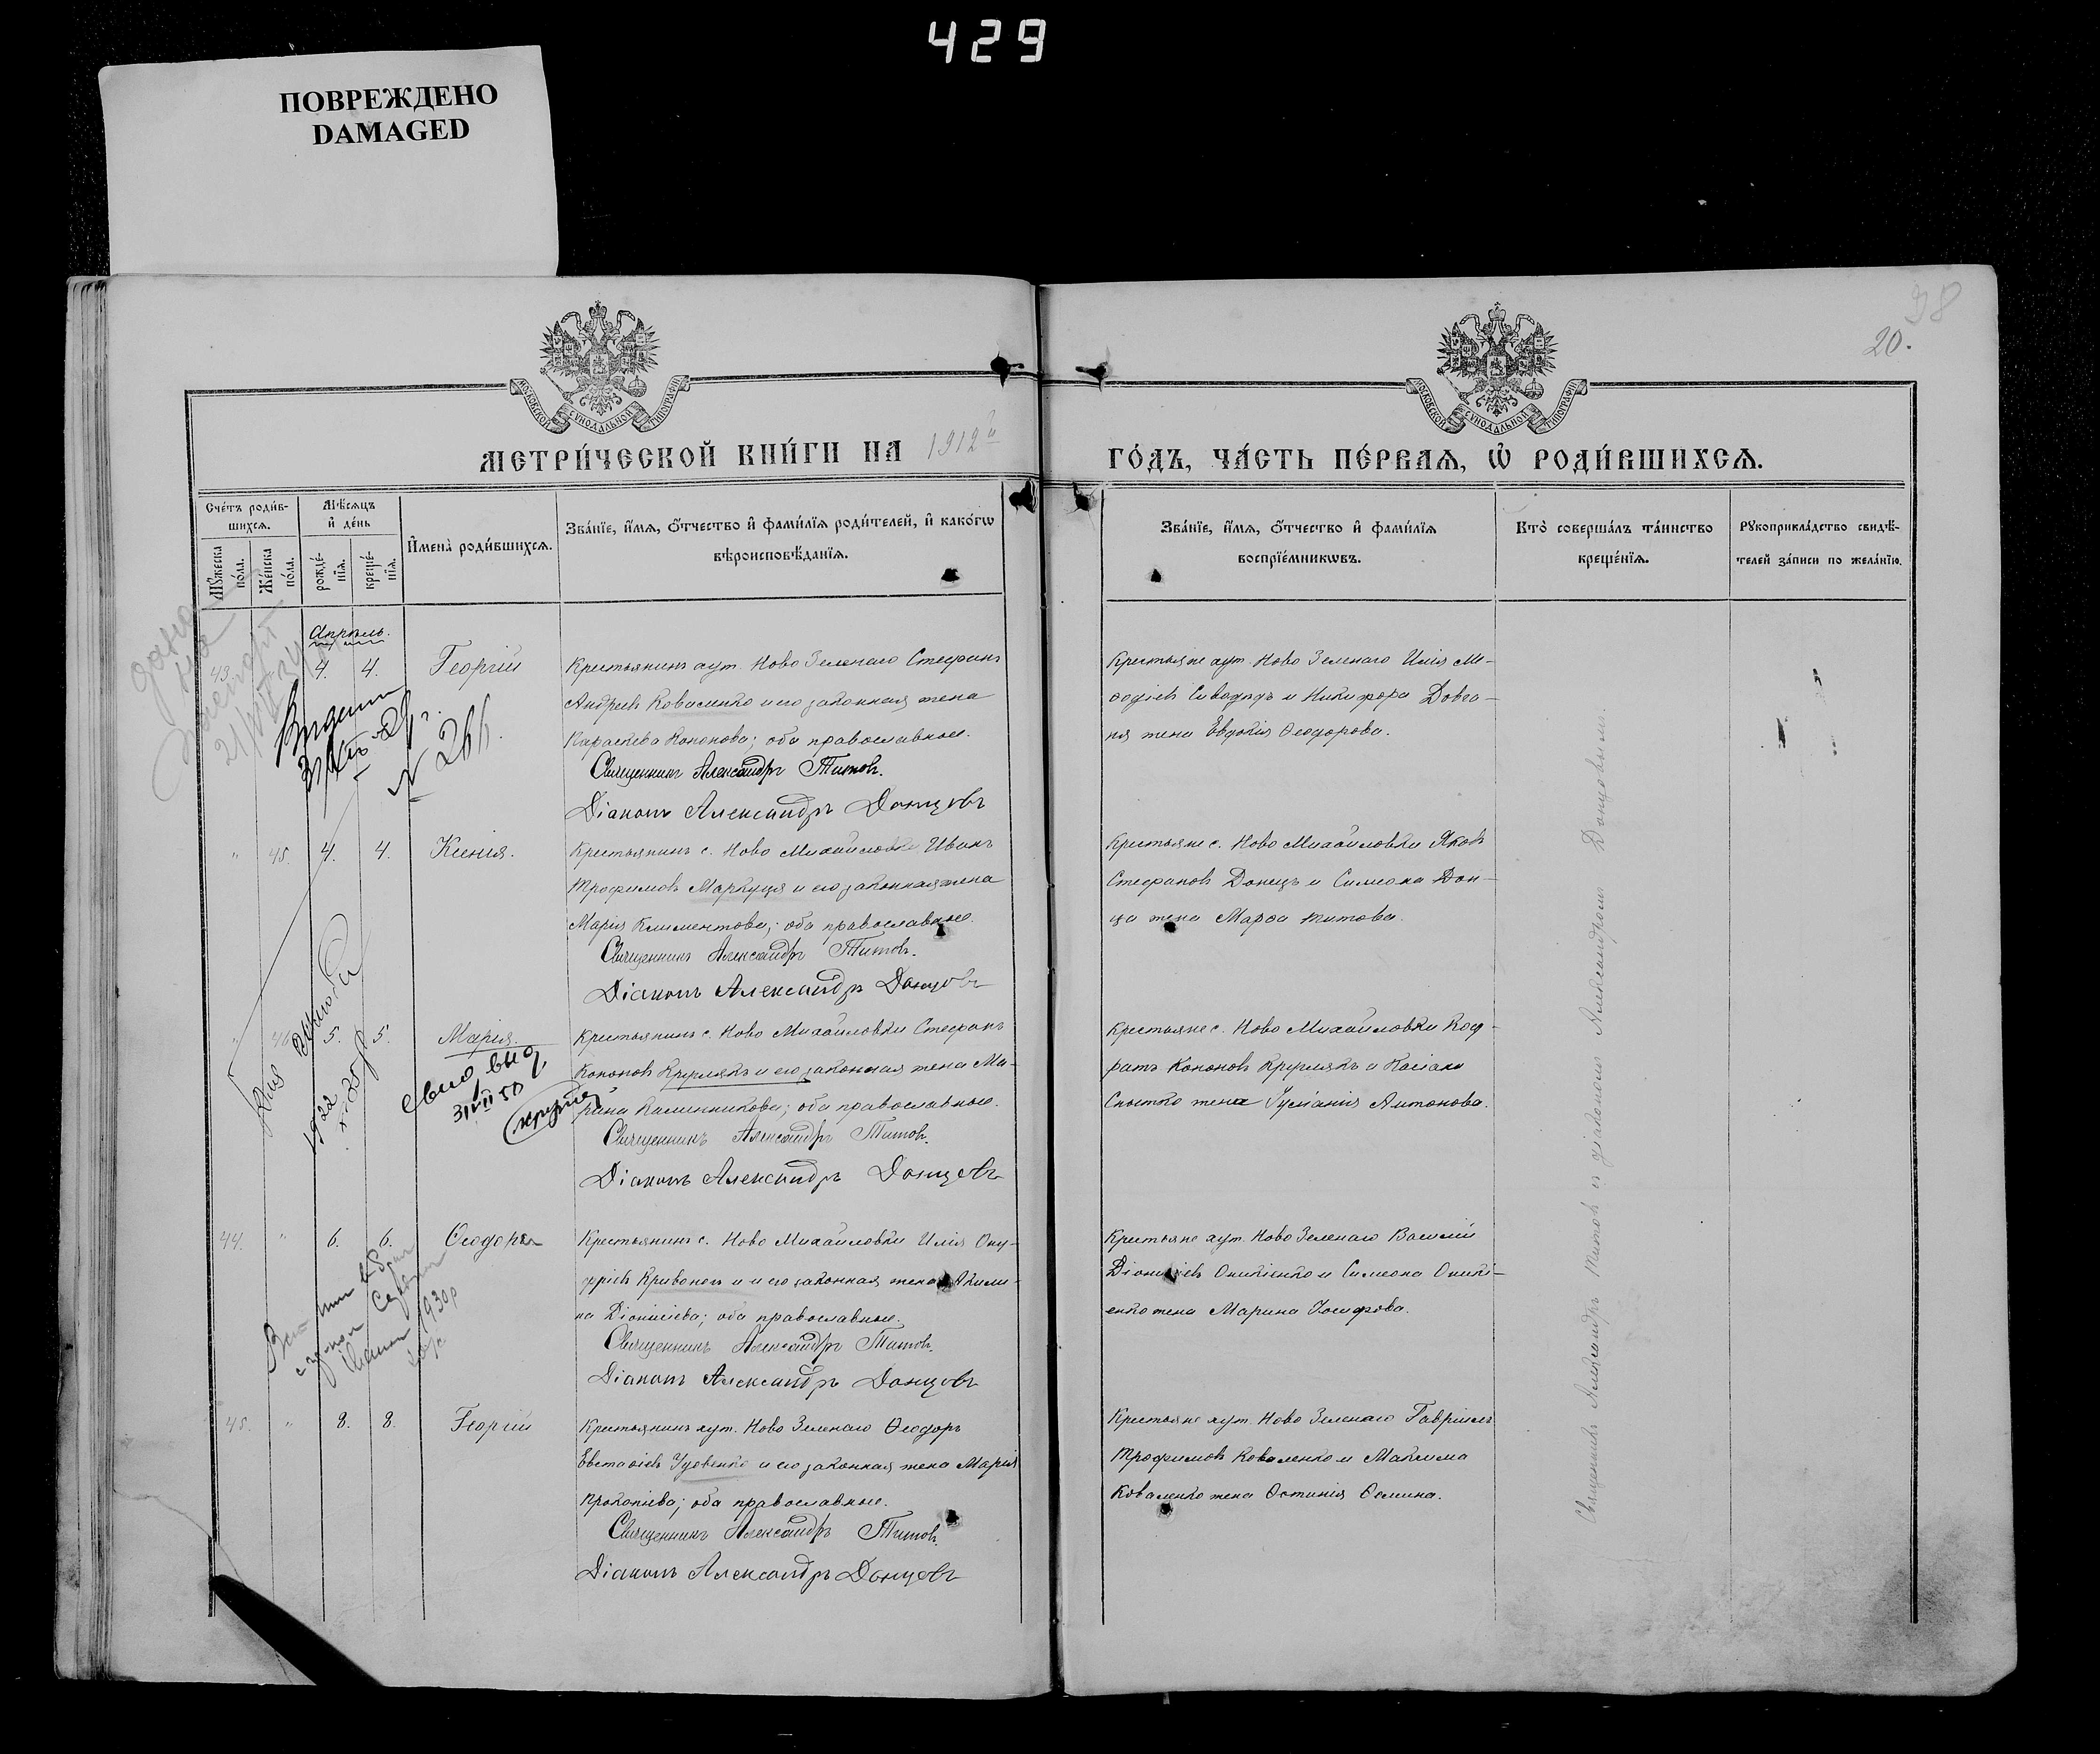 429
ПОВРЕЖДЕНО
DAMAGED
98
20.
МОСКОВСКОЙ СѴНОДАЛЬНОЙ ТИПОГРАФІИ
МОСКОВСКОЙ СѴНОДАЛЬНОЙ ТИПОГРАФІИ
МЕТРИ́ЧЕСКОЙ КНИ́ГИ НА 1912й
ГО́ДЪ, ЧА́СТЬ ПЕ́РВАѦ, Ѡ҆ РОДИ́ВШИХСѦ.
Сче́тъ роди́в-
шихсѧ.
Мꙋ́жеска
по́ла.
Же́нска
по́ла.
Мѣ́сѧцъ
и҆ де́нь
рожде́-
нїѧ.
креще́-
нїѧ.
И҆мена̀ роди́вшихсѧ.
Зва́нїе, и҆́мѧ, ѻ҆́тчество и҆ фами́лїѧ роди́телей, и҆ како́гѡ
вѣроисповѣ́данїѧ.
Зва́нїе, и҆́мѧ, ѻ҆́тчество и҆ фами́лїѧ
воспрїе́мникѡвъ.
Кто̀ соверша́лъ та́инство
креще́нїѧ.
Рꙋкоприкла́дство свидѣ́-
телей за́писи по жела́нїю.
Апрѣль.
43. 4. 4. Георгій
Крестьянинъ хут. Ново Зеленаго Стефанъ
Андреевъ Коваленко и его законная жена
Параскева Кононова; оба православные.
Священникъ Александръ Титовъ.
Діаконъ Александръ Донцовъ
Крестьяне хут. Ново Зеленаго Илія Ме-
ѳодіевъ и Никифора Довга-
ня жена Евдокія Ѳеодорова.
№ 266.
" 45. 4. 4. Ксенія.
Крестьянинъ с. Ново Михайловки Иванъ
Трофимовъ Маркуця и его законная жена
Марія Климентова; оба православные.
Священникъ Александръ Титовъ.
Діаконъ Александръ Донцовъ
Крестьяне с. Ново Михайловки Яковъ
Стефановъ Донецъ и Симеона Дон-
ца жена Марѳа Титова.
" 46. 5. 5. Марія.
Крестьянинъ с. Ново Михайловки Стефанъ
Кононовъ Круглякъ и его законная жена Ма-
рина Калинникова; оба православные.
Священникъ Александръ Титовъ.
Діаконъ Александръ Донцовъ
Крестьяне с. Ново Михайловки Код-
ратъ Кононовъ Круглякъ и Касіана
жена Іуліанія Антонова.
44. " 6. 6. Ѳеодора
Крестьянинъ с. Ново Михайловки Илія Ону-
фріевъ Кривонося и его законная жена Акили-
на Діонисіева; оба православные.
Священникъ Александръ Титовъ.
Діаконъ Александръ Донцовъ
Крестьяне хут. Ново Зеленаго Василій
Діонисіевъ Оникіенко и Симеона Оникі-
енко жена Марина Іосифова.
45. " 8. 8. Георгій
Крестьянинъ хут. Ново Зеленаго Ѳеодоръ
Евстаѳіевъ Удовенко и его законная жена Марія
Прокопіева; оба православные.
Священникъ Александръ Титовъ.
Діаконъ Александръ Донцовъ
Крестьяне хут. Ново Зеленаго Гавріилъ
Трофимовъ Коваленко и Максима
Коваленко жена Устинія Ѳомина.
Священникъ Александръ Титовъ съ діакономъ Александромъ Донцовымъ